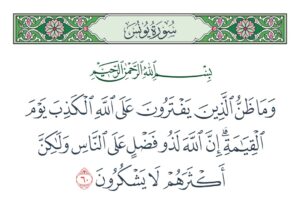 سُورَةُ يُونُسَ
بِسْمِ اللَّهِ الرَّحْمَٰنِ الرَّحِيمِ
وَمَا ظَنُّ الَّذِينَ يَفْتَرُونَ عَلَى اللَّهِ الْكَذِبَ يَوْمَ
الْقِيَامَةِ ۗ إِنَّ اللَّهَ لَذُو فَضْلٍ عَلَى النَّاسِ وَلَٰكِنَّ
أَكْثَرَهُمْ لَا يَشْكُرُونَ ٦٠